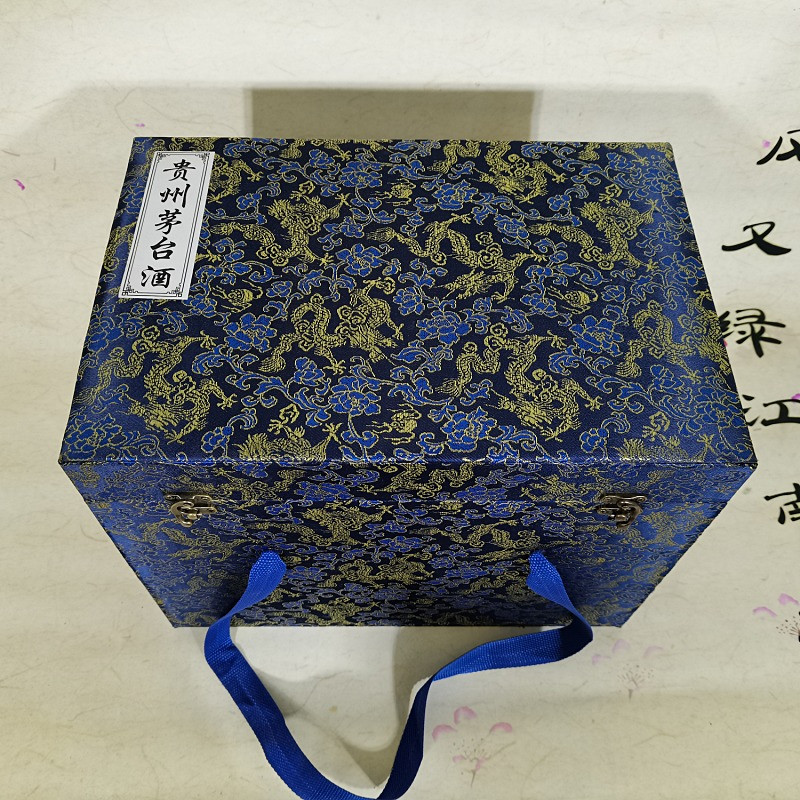 贵州茅台酒
又绿江南